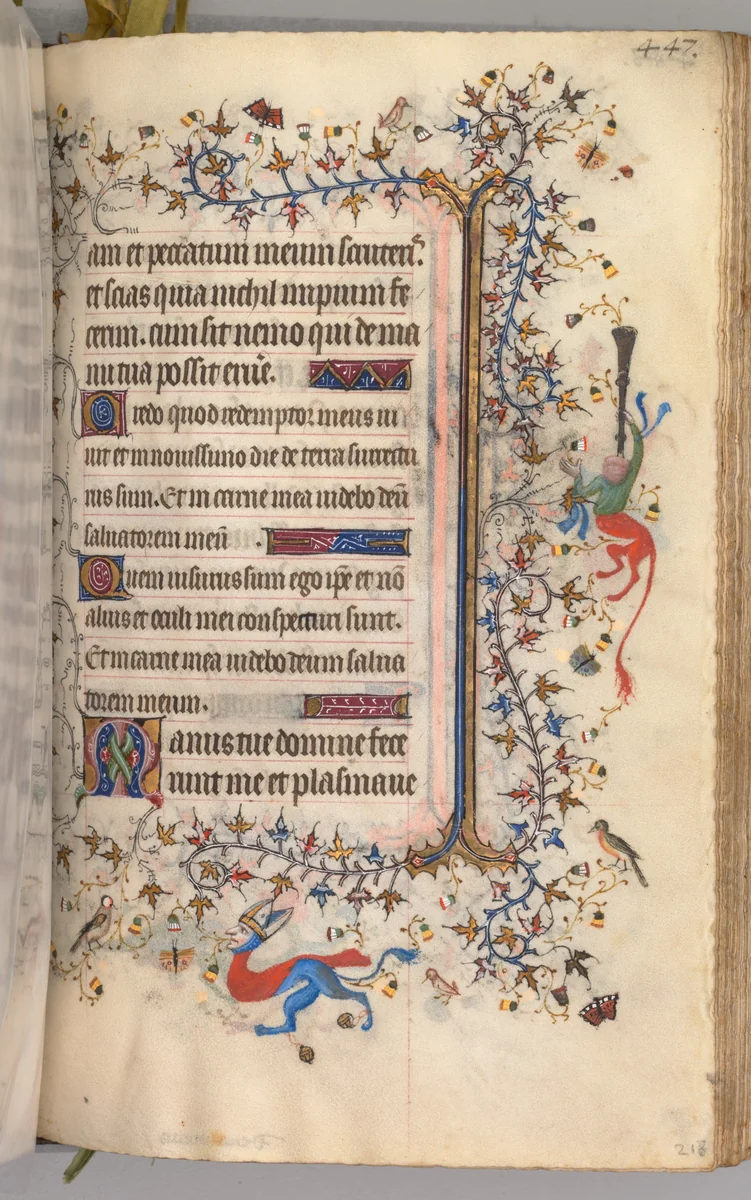 447.
am et peccatum meum scruteris.
et scias quia nichil impium fe
cerim. cum sit nemo qui de ma
nu tua possit eruẽ.
Credo quod redemptor meus ui
uit et in nouissimo die de terra surrectu
rus sum. Et in carne mea uidebo deũ
saluatorem meũ
Quem uisurus sum ego ip̃e et nõ
alius et oculi mei conspecturi sunt.
Et in carne mea uidebo deum salua
torem meum.
Manus tue domine fece
runt me et plasmaue
218